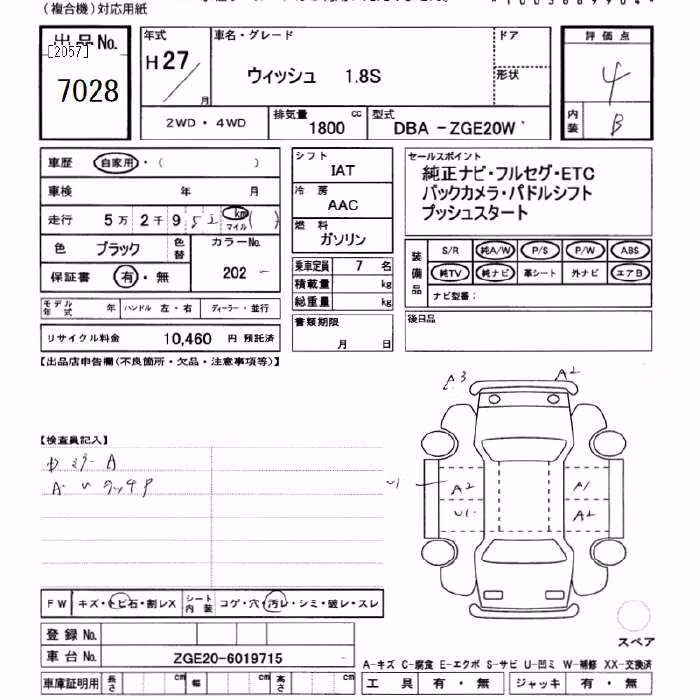 （複合機）対応用紙
出品No.
[2057]
7028
年式
H27/
月
車名・グレード
ウィッシュ 1.8S
ドア
形状
評価点
4
内装
B
2WD・4WD
排気量
1800 cc
型式
DBA-ZGE20W
車歴 自家用・（ ）
車検 年 月
走行 5万2千9 km マイル ( )
色 ブラック 色替 カラーNo.
202
保証書 有・無
モデル年式 年 ハンドル 左・右 ディーラー・並行
リサイクル料金 10,460 円 預託済
シフト
IAT
冷房
AAC
燃料
ガソリン
乗車定員 7 名
積載量 kg
総重量 kg
書類期限
月 日
セールスポイント
純正ナビ・フルセグ・ETC
バックカメラ・パドルシフト
プッシュスタート
装備品
S/R 純A/W P/S P/W ABS
純TV 純ナビ 革シート 外ナビ エアB
ナビ型番：
後日品
【出品店申告欄（不良箇所・欠品・注意事項等）】
【検査員記入】
A3 A2
U1 A2 A1
U1 A2
FW キズ・トビ石・割レX シート内装 コゲ・穴・汚レ・シミ・破レ・スレ
登録No.
車台No. ZGE20-6019715
車庫証明用 長さ cm 幅 cm 高さ cm
スペア
A-キズ C-腐食 E-エクボ S-サビ U-凹ミ W-補修 XX-交換済
工具 有・無 ジャッキ 有・無